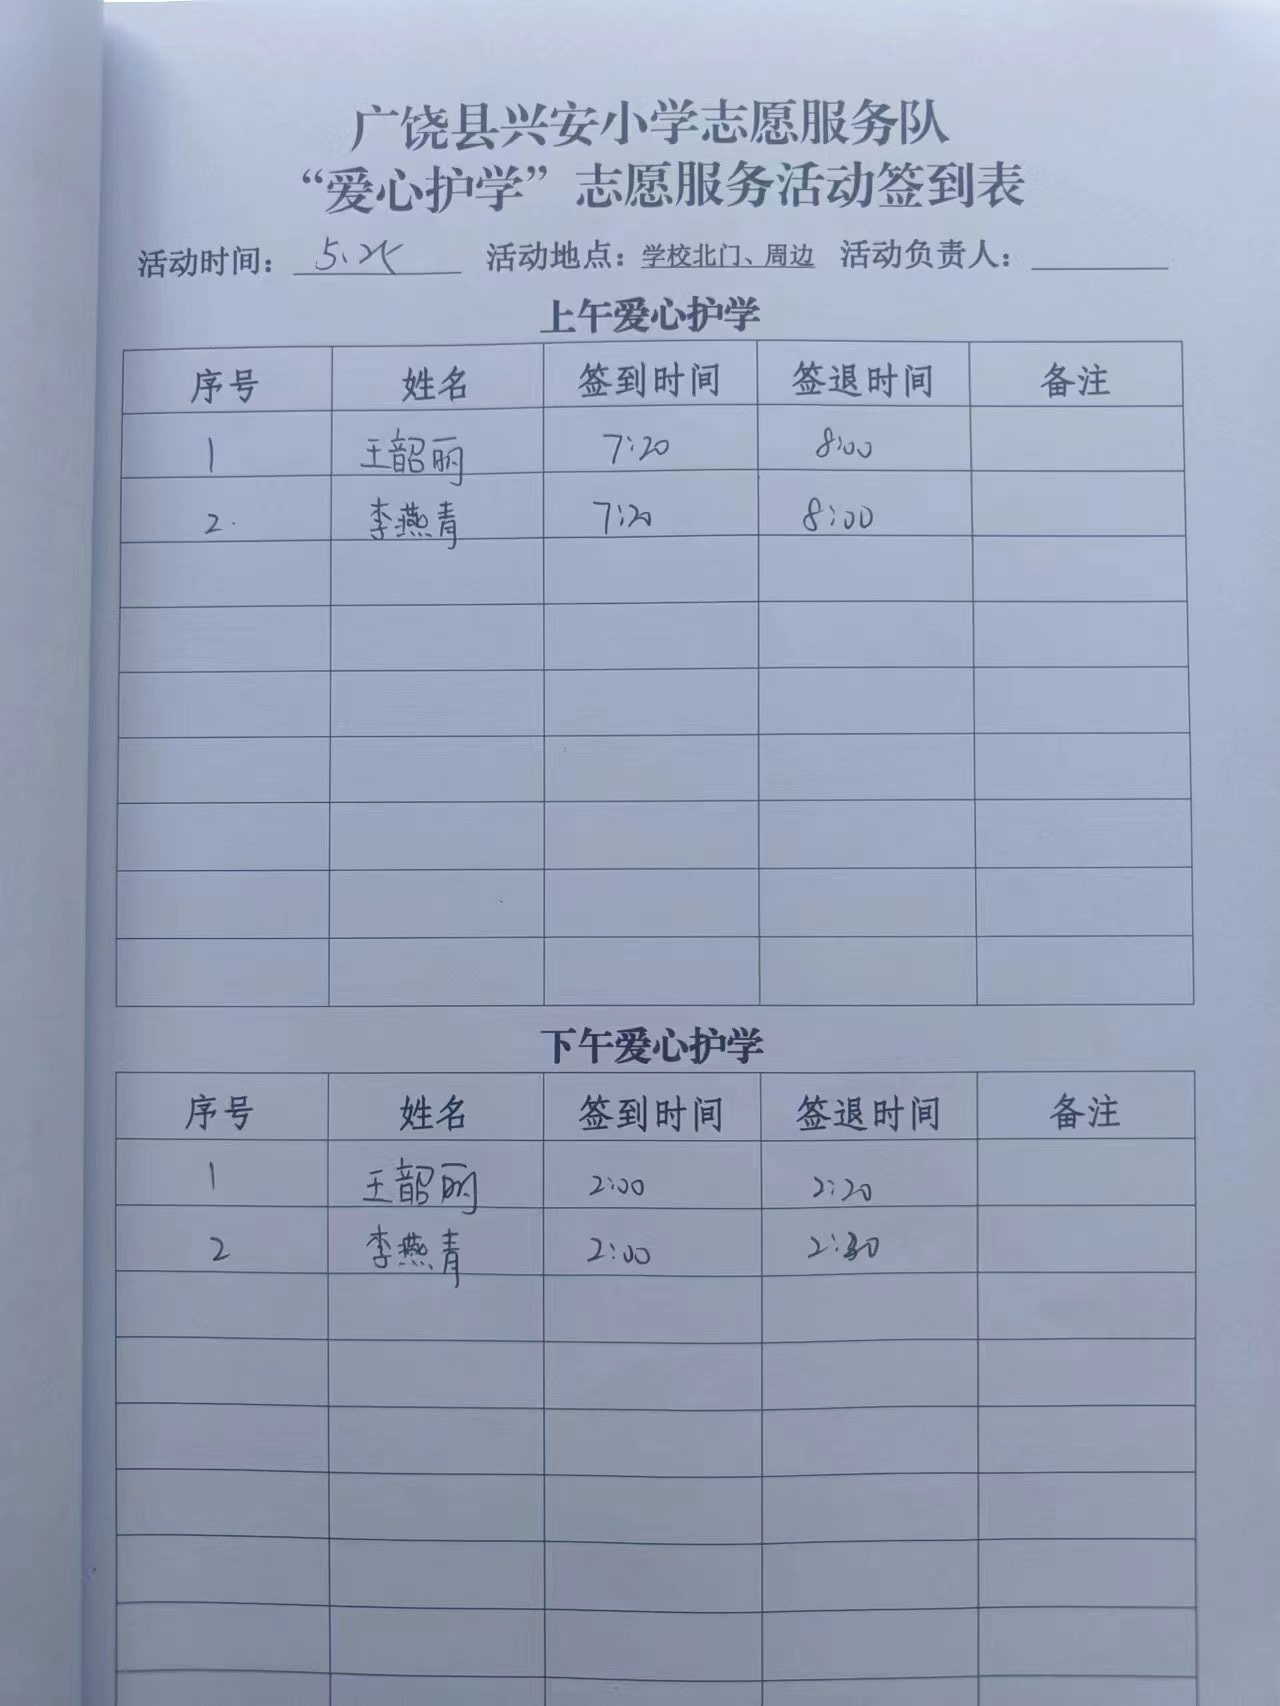 广饶县兴安小学志愿服务队
“爱心护学”志愿服务活动签到表
活动时间： 活动地点：学校北门、周边 活动负责人：
上午爱心护学
序号 姓名 签到时间 签退时间 备注
1 王韶丽 7:20 8:00
2. 李燕青 7:20 8:00
下午爱心护学
序号 姓名 签到时间 签退时间 备注
1 王韶丽 2:00 2:20
2 李燕青 2:00